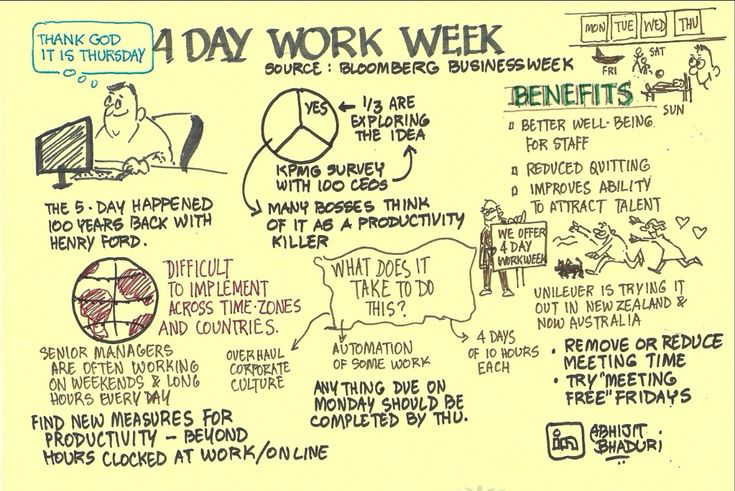 THANK GOD
IT IS THURSDAY
4 DAY WORK WEEK
SOURCE : BLOOMBERG BUSINESSWEEK
MON TUE WED THU
FRI
SAT
SUN
THE 5-DAY HAPPENED
100 YEARS BACK WITH
HENRY FORD.
YES
1/3 ARE
EXPLORING
THE IDEA
KPMG SURVEY
WITH 100 CEOS
MANY BOSSES THINK
OF IT AS A PRODUCTIVITY
KILLER
BENEFITS
BETTER WELL-BEING
FOR STAFF
REDUCED QUITTING
IMPROVES ABILITY
TO ATTRACT TALENT
WE OFFER
4 DAY
WORKWEEK
UNILEVER IS TRYING IT
OUT IN NEW ZEALAND &
NOW AUSTRALIA
DIFFICULT
TO IMPLEMENT
ACROSS TIME-ZONES
AND COUNTRIES.
SENIOR MANAGERS
ARE OFTEN WORKING
ON WEEKENDS & LONG
HOURS EVERY DAY
FIND NEW MEASURES FOR
PRODUCTIVITY – BEYOND
HOURS CLOCKED AT WORK/ONLINE
WHAT DOES IT
TAKE TO DO
THIS?
OVERHAUL
CORPORATE
CULTURE
AUTOMATION
OF SOME WORK
4 DAYS
OF 10 HOURS
EACH
ANYTHING DUE ON
MONDAY SHOULD BE
COMPLETED BY THU.
• REMOVE OR REDUCE
MEETING TIME
• TRY "MEETING
FREE" FRIDAYS
in
ABHIJIT
BHADURI